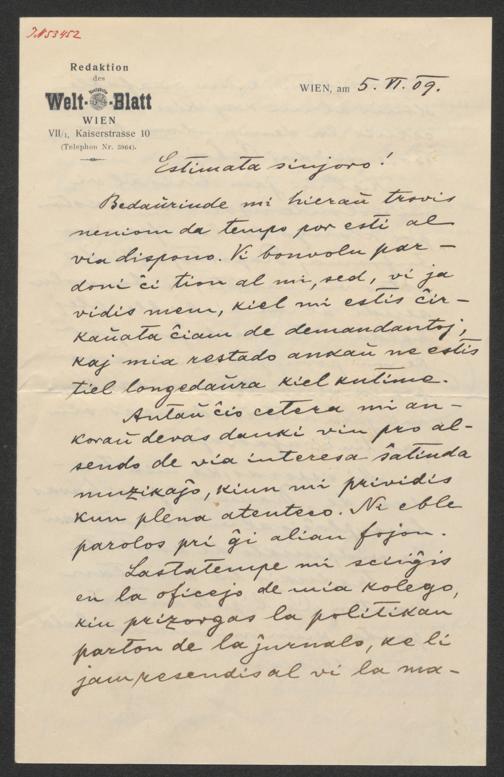 J.N 53452
Redaktion
des
Welt-Blatt
WIEN
VII/1, Kaiserstrasse 10
(Telephon Nr. 3964).
WIEN, am 5. VI. 09.
Estimata sinjoro!
Bedaŭrinde mi hieraŭ trovis
neniom da tempo por esti al
via dispono. Vi bonvolu par-
doni ĉi tion al mi, sed, vi ja
vidis mem, kiel mi estis ĉir-
kaŭata ĉiam de demandantoj,
kaj mia restado ankaŭ ne estis
tiel longedaŭra kiel kutime.
Antaŭ ĉio cetera mi an-
koraŭ devas danki vin pro al-
sendo de via interesa ŝatinda
muzikaĵo, kiun mi prividis
kun plena atenteco. Ni eble
parolos pri ĝi alian fojon.
Lastatempe mi sciiĝis
en la oficejo de mia kolego,
kiu prizorgas la politikan
parton de la ĵurnalo, ke li
jam resendis al vi la ma-